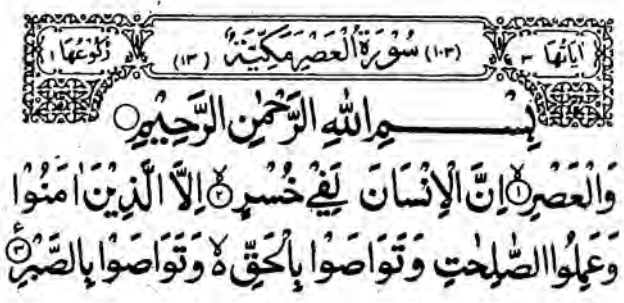 اٰيَاتُهَا ٣ (١٠٣) سُوْرَةُ الْعَصْرِ مَكِّيَّةٌ (١٣) رُكُوْعُهَا ١
بِسْمِ اللّٰهِ الرَّحْمٰنِ الرَّحِيْمِ
وَالْعَصْرِ ۙ‏﴿١﴾ اِنَّ الْاِنْسَانَ لَفِيْ خُسْرٍ ۙ‏﴿٢﴾ اِلَّا الَّذِيْنَ اٰمَنُوْا
وَعَمِلُوا الصّٰلِحٰتِ وَتَوَاصَوْا بِالْحَقِّ ۙ وَتَوَاصَوْا بِالصَّبْرِ ﴿٣﴾